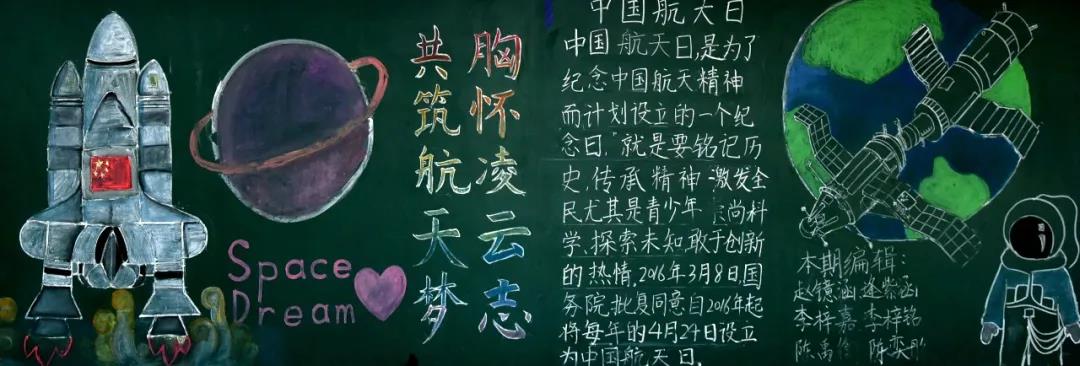 Space
Dream
胸怀凌云志
共筑航天梦
中国航天日
中国航天日,是为了
纪念中国航天精神
而计划设立的一个纪
念日,就是要铭记历
史,传承精神 激发全
民尤其是青少年 尚科
学、探索未知敢于创新
的热情.2016年3月8日,国
务院批复同意自2016年起
将每年的4月24日设立
为中国航天日.
本期编辑:
赵镜涵 逄紫函
李梓嘉 李梓铭
陈禹 陈奕彤